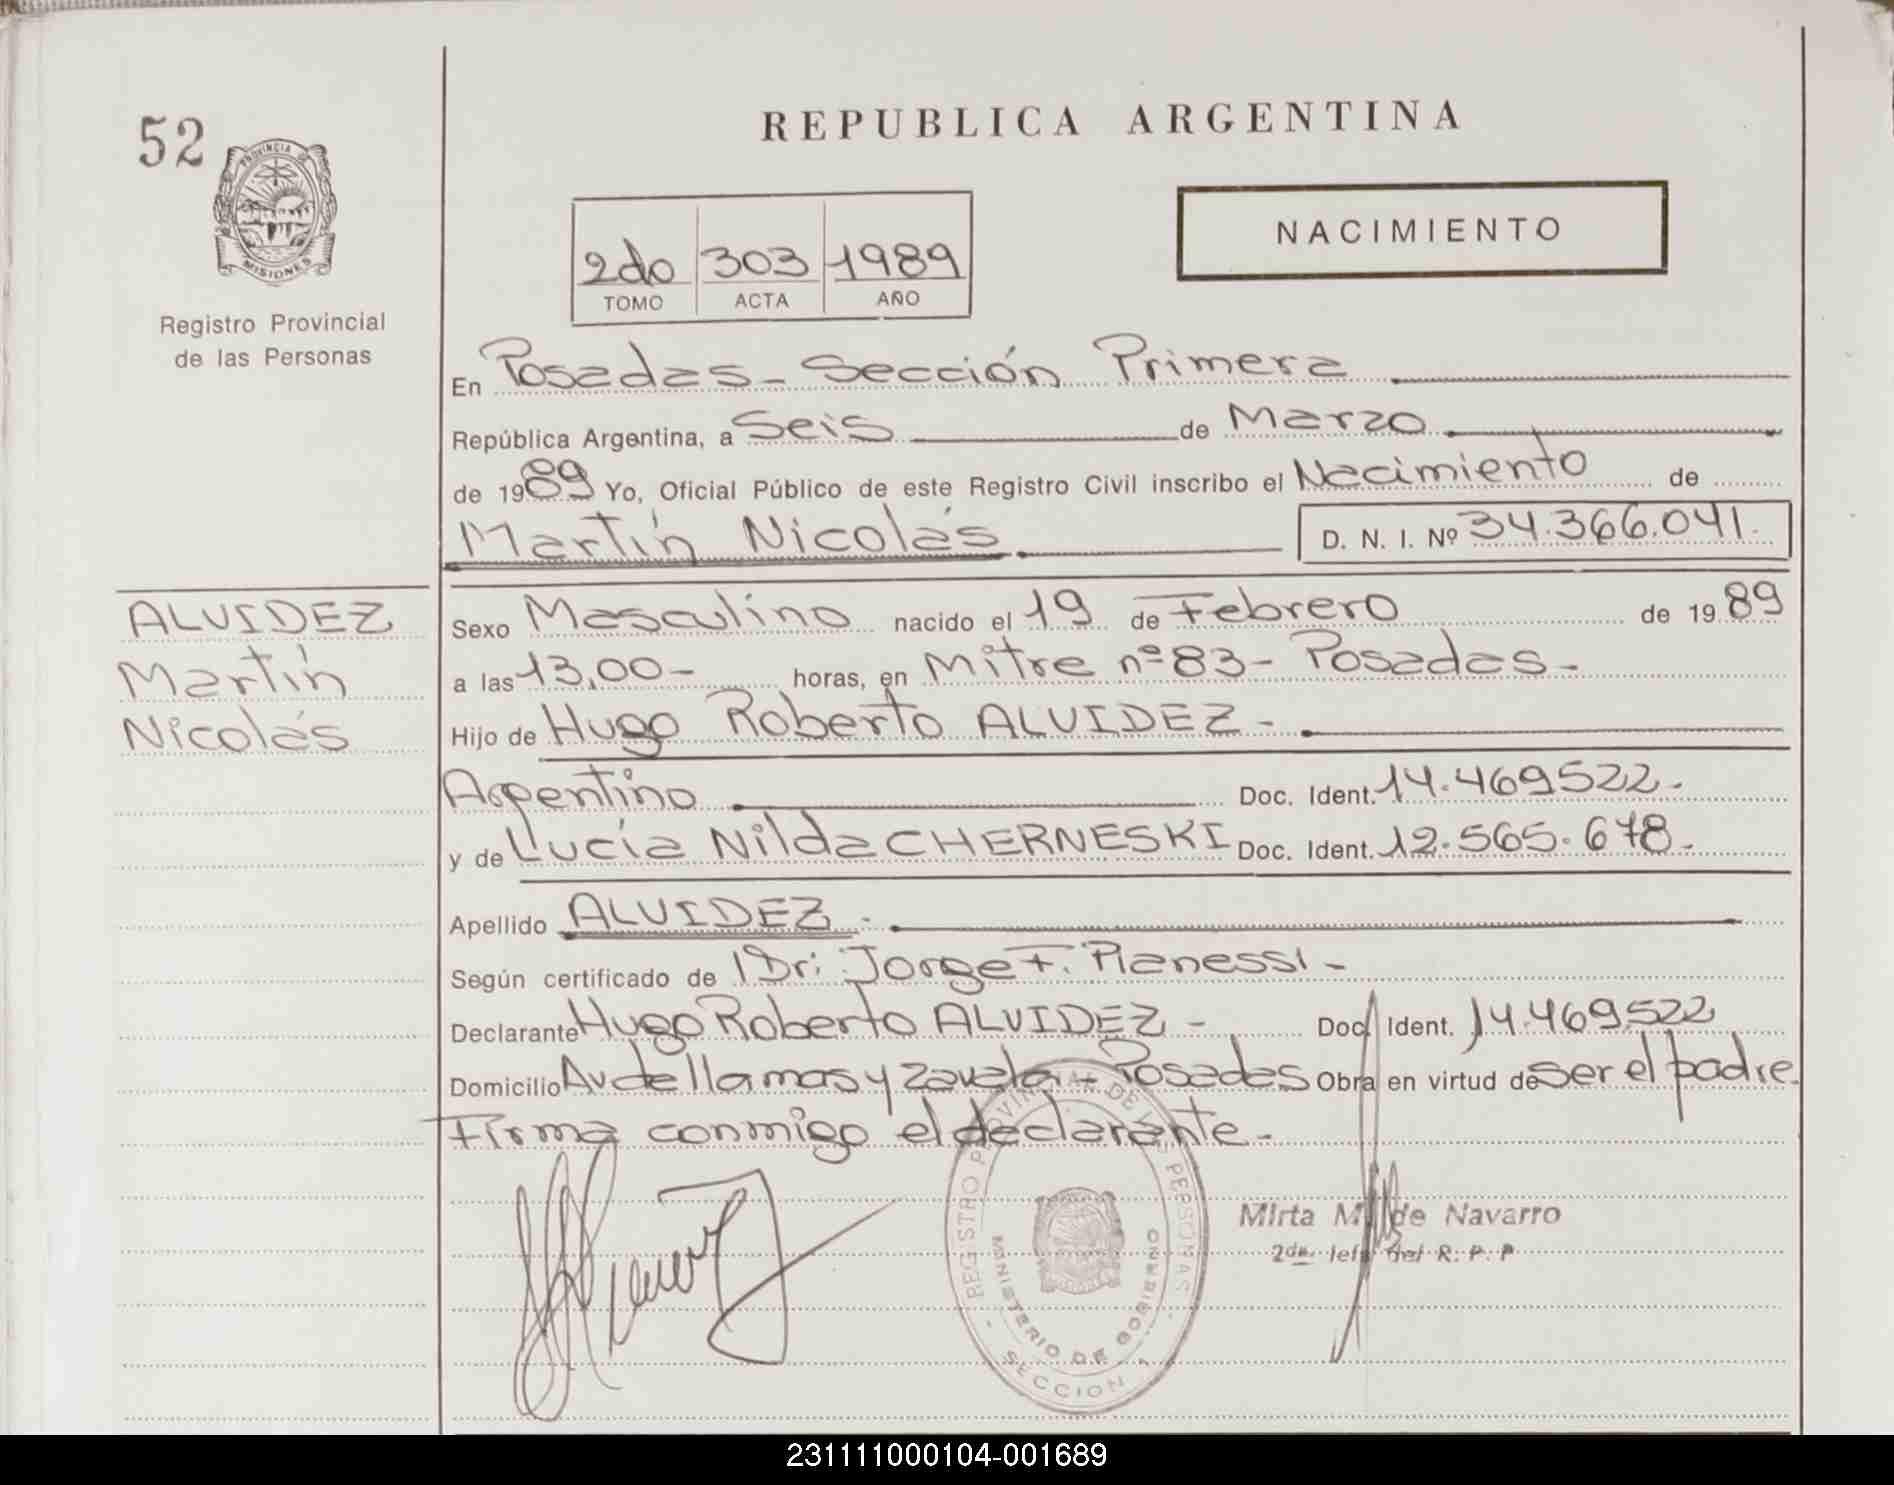 52
PROVINCIA DE
MISIONES
Registro Provincial
de las Personas
REPUBLICA ARGENTINA
2do 303 1989
TOMO ACTA AÑO
NACIMIENTO
En Posadas - Sección Primera
República Argentina, a Seis de Marzo
de 1989 Yo, Oficial Público de este Registro Civil inscribo el Nacimiento de
Martín Nicolás D. N. I. Nº 34.366.041.
ALVIDEZ
Martín
Nicolás
Sexo Masculino nacido el 19 de Febrero de 1989
a las 13,00- horas, en Mitre nº 83- Posadas-
Hijo de Hugo Roberto ALVIDEZ-
Argentino Doc. Ident. 14.469522-
y de Lucía Nilda CHERNESKI Doc. Ident. 12.565.678-
Apellido ALVIDEZ-
Según certificado de Dr: Jorge F. Planessi-
Declarante Hugo Roberto ALVIDEZ- Doc. Ident. 14.469522
Domicilio Av de llamas y Zavala - Posadas Obra en virtud de ser el padre.
Firma conmigo el declarante-
REGISTRO PROVINCIAL DE LAS PERSONAS
MINISTERIO DE GOBIERNO
SECCION 1
Mirta M. de Navarro
2da. Jefa del R. P. P
231111000104-001689